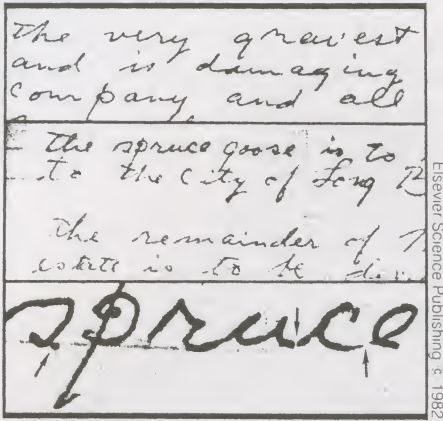 the very gravest
and is damaging
company, and all
the spruce goose is to
to the City of Long B
the remainder of
estate is to be div
spruce
Elsevier Science Publishing c 1982